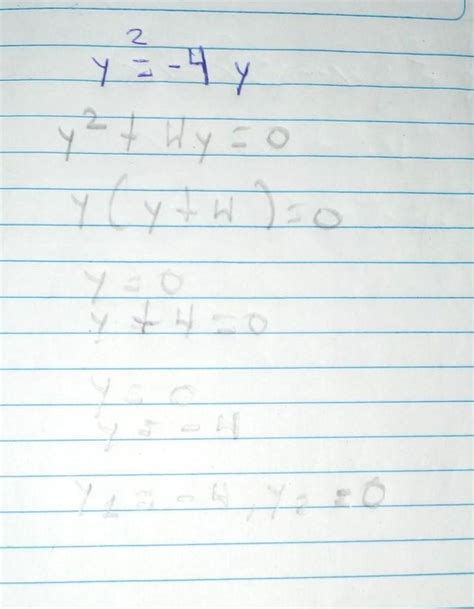 y² = -4y
y² + 4y = 0
y(y+4) = 0
y = 0
y + 4 = 0
y = 0
y = -4
y₁ = -4, y₂ = 0